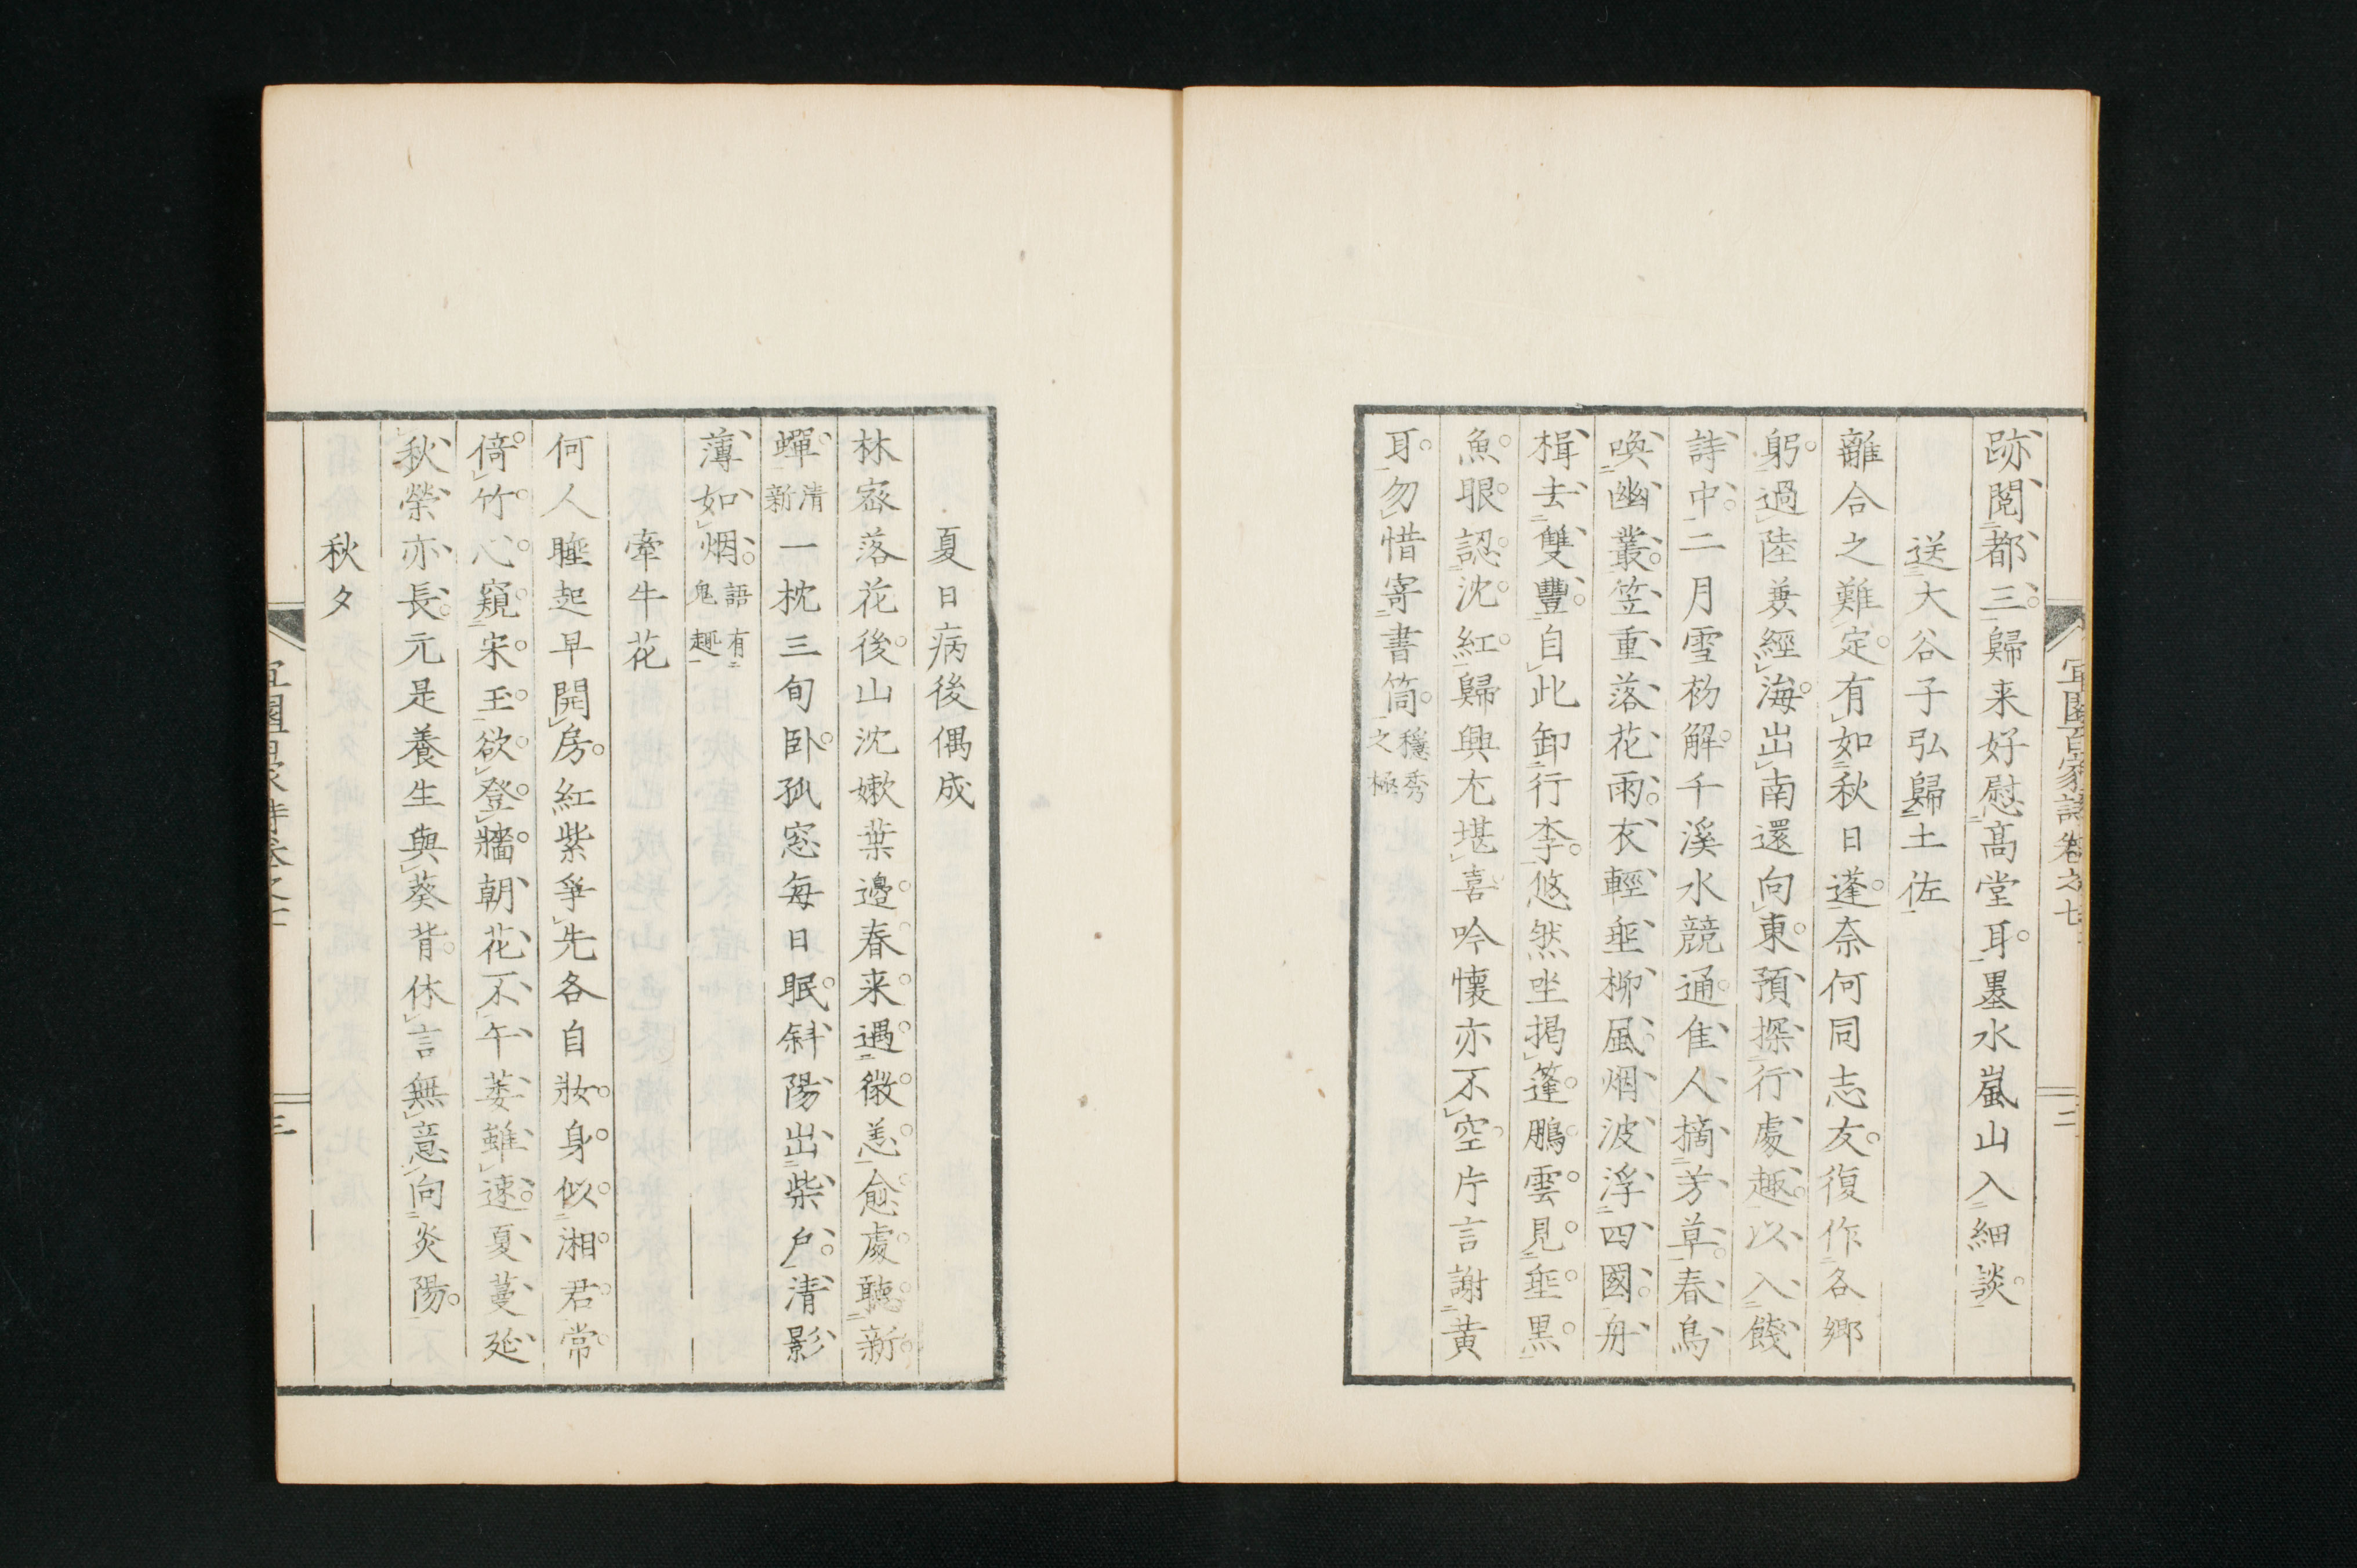 跡閲都三歸来好慰髙堂耳墨水嵐山入細談
送大谷子弘歸土佐
離合之難定有如秋日蓬奈何同志友復作各鄉
躬過陸兼經海出南還向東預探行處趣以入餞
詩中二月雪初解千溪水競通隹人摘芳草春鳥
喚幽叢笠重落花雨衣輕垂柳風烟波浮四國舟
楫去雙豐自此卸行李悠然坐揭篷鵬雲見垂黒
魚眼認沈紅歸興尢堪喜吟懷亦不空片言謝黄
耳勿惜寄書筒穩秀之極
夏日病後偶成
林密落花後山沈嫩葉邊春来遇微恙愈處聽新
蟬清新一枕三旬卧孤窓每日眠斜陽出柴戶清影
薄如烟語有鬼趣
牽牛花
何人睡起早開房紅紫爭先各自妝身似湘君常
倚竹心窺宋玉欲登牆朝花不午萎雖速夏蔓延
秋榮亦長元是養生與葵背休言無意向炎陽
秋夕